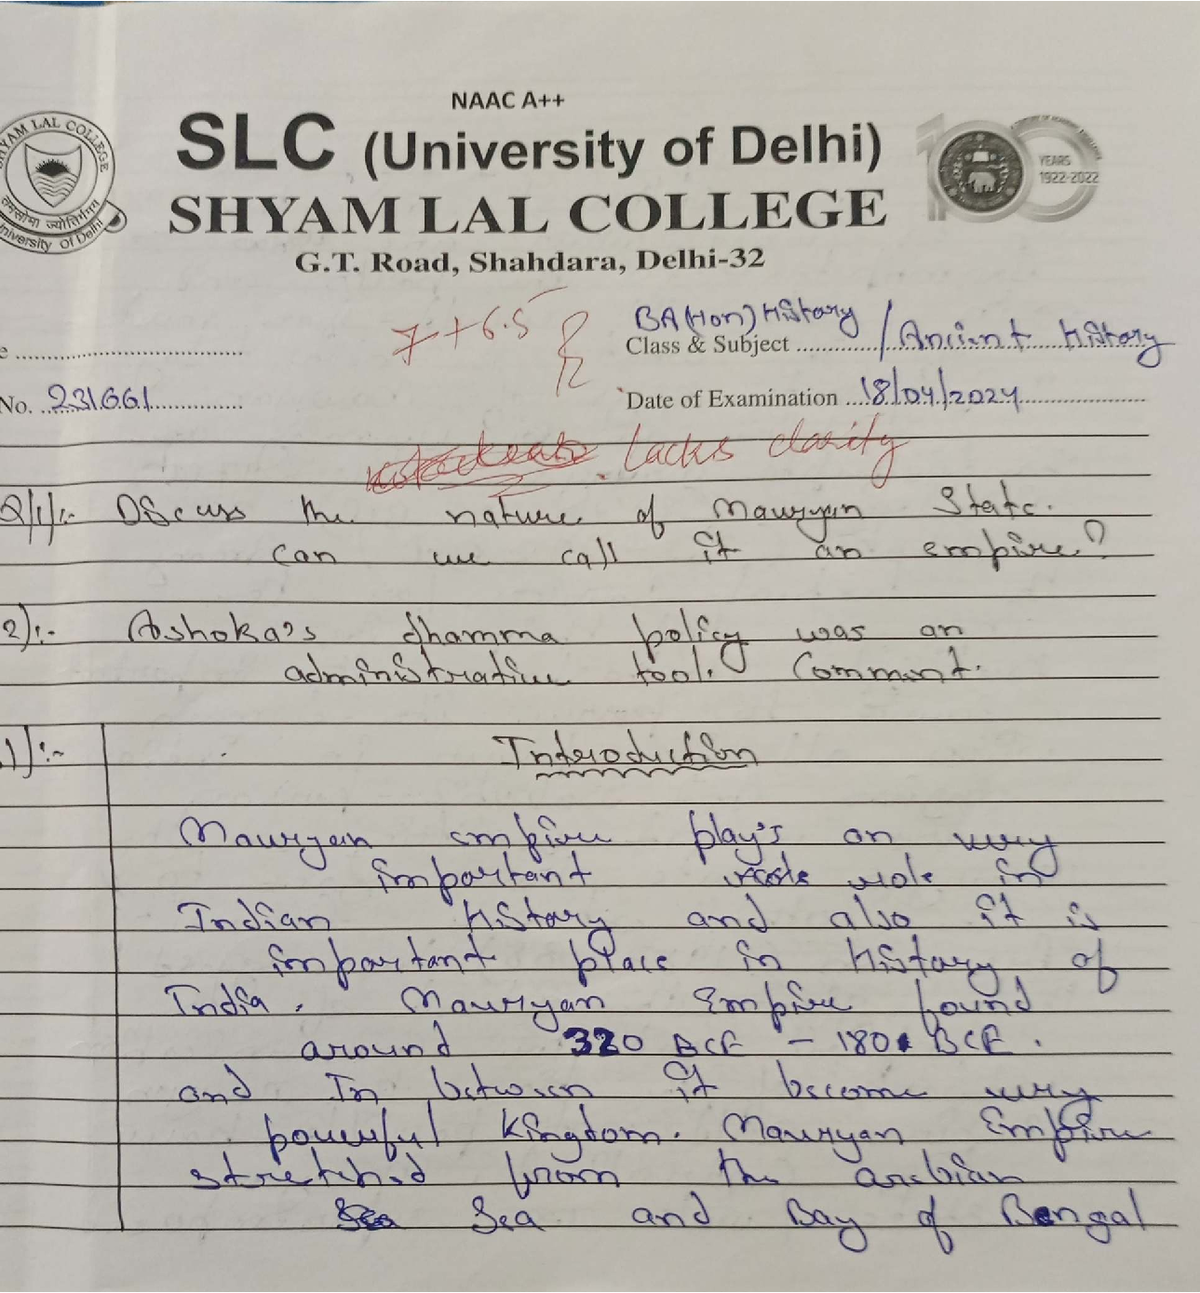 NAAC A++
SLC (University of Delhi)
SHYAM LAL COLLEGE
G.T. Road, Shahdara, Delhi-32
SHYAM LAL COLLEGE
तमसोमा ज्योतिर्गमय
University of Delhi
YEARS
1922-2022
7 + 6.5
BA(Hon) History / Ancient History
Class & Subject
No. 231661
Date of Examination 18/04/2024
Lacks clarity
Q/1/:- Discuss the nature of Mauryan State.
can we call it an empire?
2):- Ashoka's dhamma policy was an
administrative tool. Comment.
1):- Introduction
Mauryan empire play's an very
important role in
Indian History and also it is
important place in History of
India. Mauryan Empire found
around 320 BCE - 180 BCE.
and In between it become very
powerful kingdom. Mauryan Empire
stretched from the arabian
Sea and Bay of Bengal